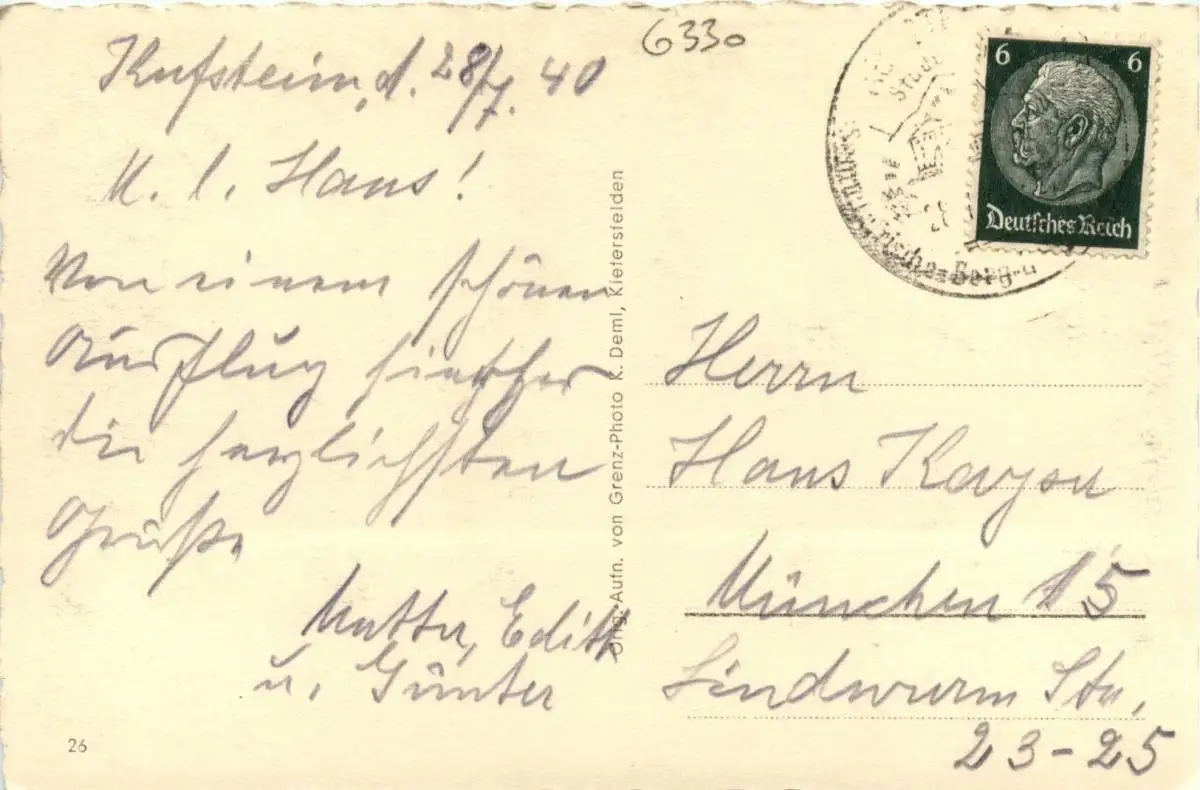 6330
Kufstein, d. 28/7. 40
M. l. Hans!
Von einem schönen
Ausflug hierher
die herzlichsten
Grüße
Mutter, Edith
u. Günter
26
Orig. Aufn. von Grenz-Photo K. Deml, Kiefersfelden
6 6
Deutsches Reich
Berg-u
Herrn
Hans Kayser
München 15
Lindwurm Str.
23-25